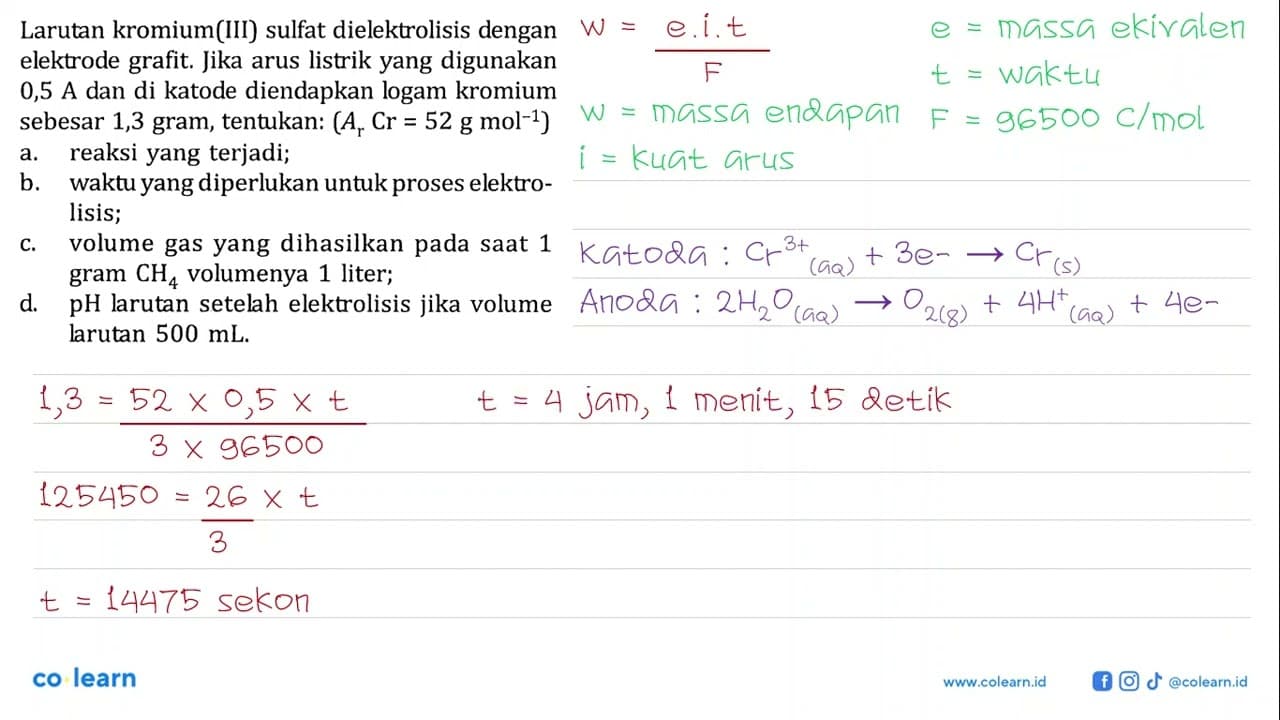 Larutan kromium(III) sulfat dielektrolisis dengan
elektrode grafit. Jika arus listrik yang digunakan
0,5 A dan di katode diendapkan logam kromium
sebesar 1,3 gram, tentukan: (Aᵣ Cr = 52 g mol⁻¹)
a. reaksi yang terjadi;
b. waktu yang diperlukan untuk proses elektro-
lisis;
c. volume gas yang dihasilkan pada saat 1
gram CH₄ volumenya 1 liter;
d. pH larutan setelah elektrolisis jika volume
larutan 500 mL.
w = e.i.t
F
w = massa endapan
i = kuat arus
e = massa ekivalen
t = waktu
F = 96500 C/mol
Katoda : Cr³⁺(aq) + 3e- → Cr(s)
Anoda : 2H₂O(aq) → O₂(g) + 4H⁺(aq) + 4e-
1,3 = 52 x 0,5 x t
3 x 96500
125450 = 26 x t
3
t = 14475 sekon
t = 4 jam, 1 menit, 15 detik
co learn
www.colearn.id
@colearn.id